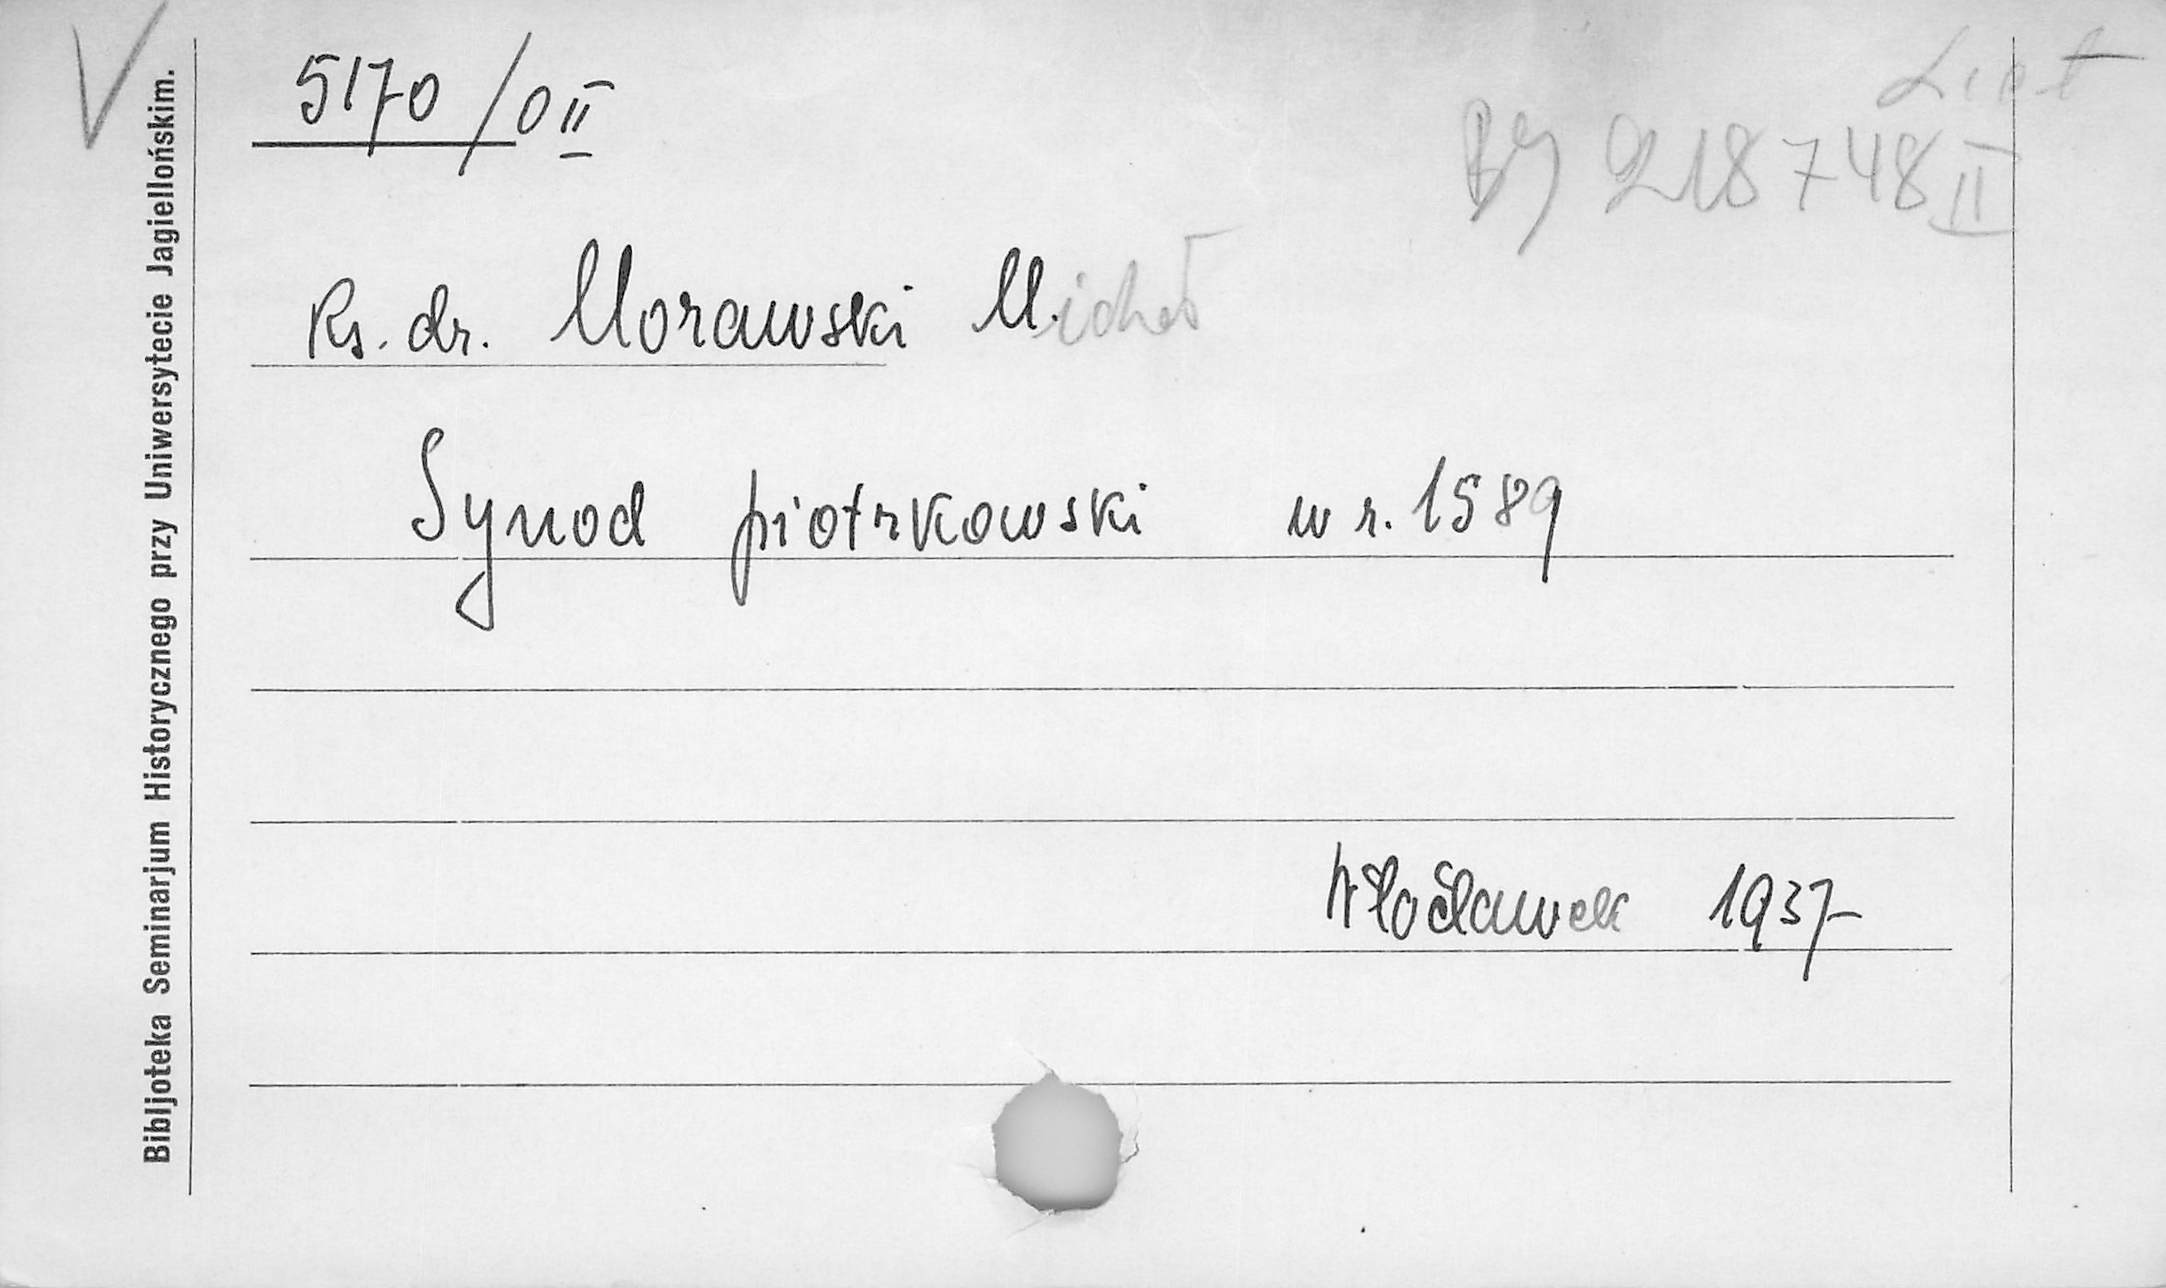 5170/0 II
BJ 218748 II
Ks. dr. Morawski Michał
Synod piotrkowski w r. 1589
Włocławek 1937
Bibljoteka Seminarjum Historycznego przy Uniwersytecie Jagiellońskim.